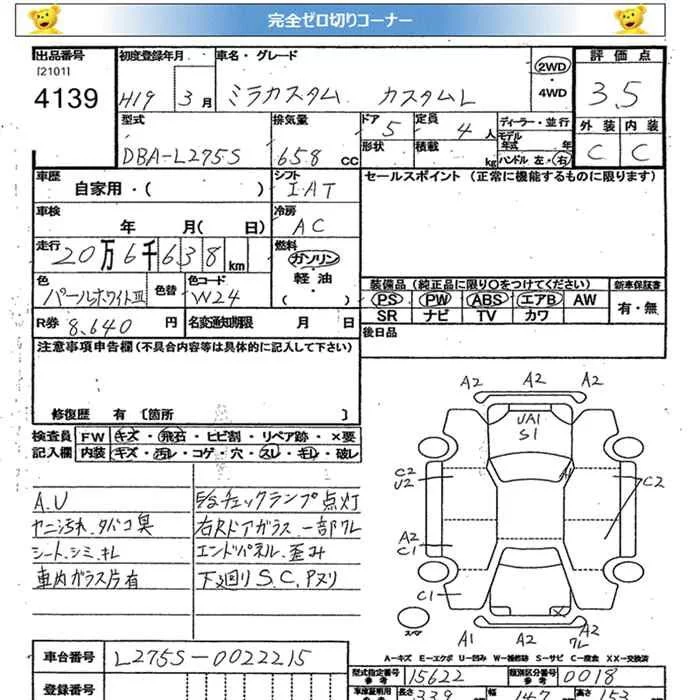 完全ゼロ切りコーナー
出品番号
[2101]
4139
初度登録年月
H19 3月
車名・グレード
ミラカスタム カスタムL
2WD
・
4WD
評価点
3.5
外装 内装
C C
型式
DBA-L275S
排気量
658 CC
ドア 5
形状
定員 4 人
積載 kg
ディーラー・並行
モデル年式 年
ハンドル 左・右
車歴
自家用・( )
シフト
IAT
セールスポイント (正常に機能するものに限ります)
車検
年 月( 日)
冷房
AC
走行
20万6千638km
燃料
ガソリン
軽油
・
( )
色
パールホワイトIII
色替
色コード
W24
装備品 (純正品に限り○をつけてください)
PS PW ABS エアB AW
SR ナビ TV カワ
新車保証書
有・無
R券 8,640 円
名変通知期限 月 日
後日品
注意事項申告欄(不具合内容等は具体的に記入して下さい)
修復歴 有 [箇所 ]
検査員
記入欄
FW キズ・飛石・ヒビ割・リペア跡・×要
内装 キズ・汚レ・コゲ・穴・スレ・キレ・破レ
A.U
ヤニ汚れ、タバコ臭
シート、シミ、キレ
車内ガラス片有
チェックランプ点灯
右Rドアガラス一部ワレ
エンドパネル、歪み
下廻りS.C.Pヌリ
A2 A2 A2
UA1
S1
C2
U2
C2
A2
C1
C1
スペア
A1 A2 U2
ワレ
A-キズ E-エクボ U-凹み W-補修跡 S-サビ C-腐食 XX-交換済
車台番号 L275S-0022215
登録番号
型式指定番号
参考
15622
類別区分番号
参考
0018
車庫証明用
長さ 339
幅 147
高さ 153